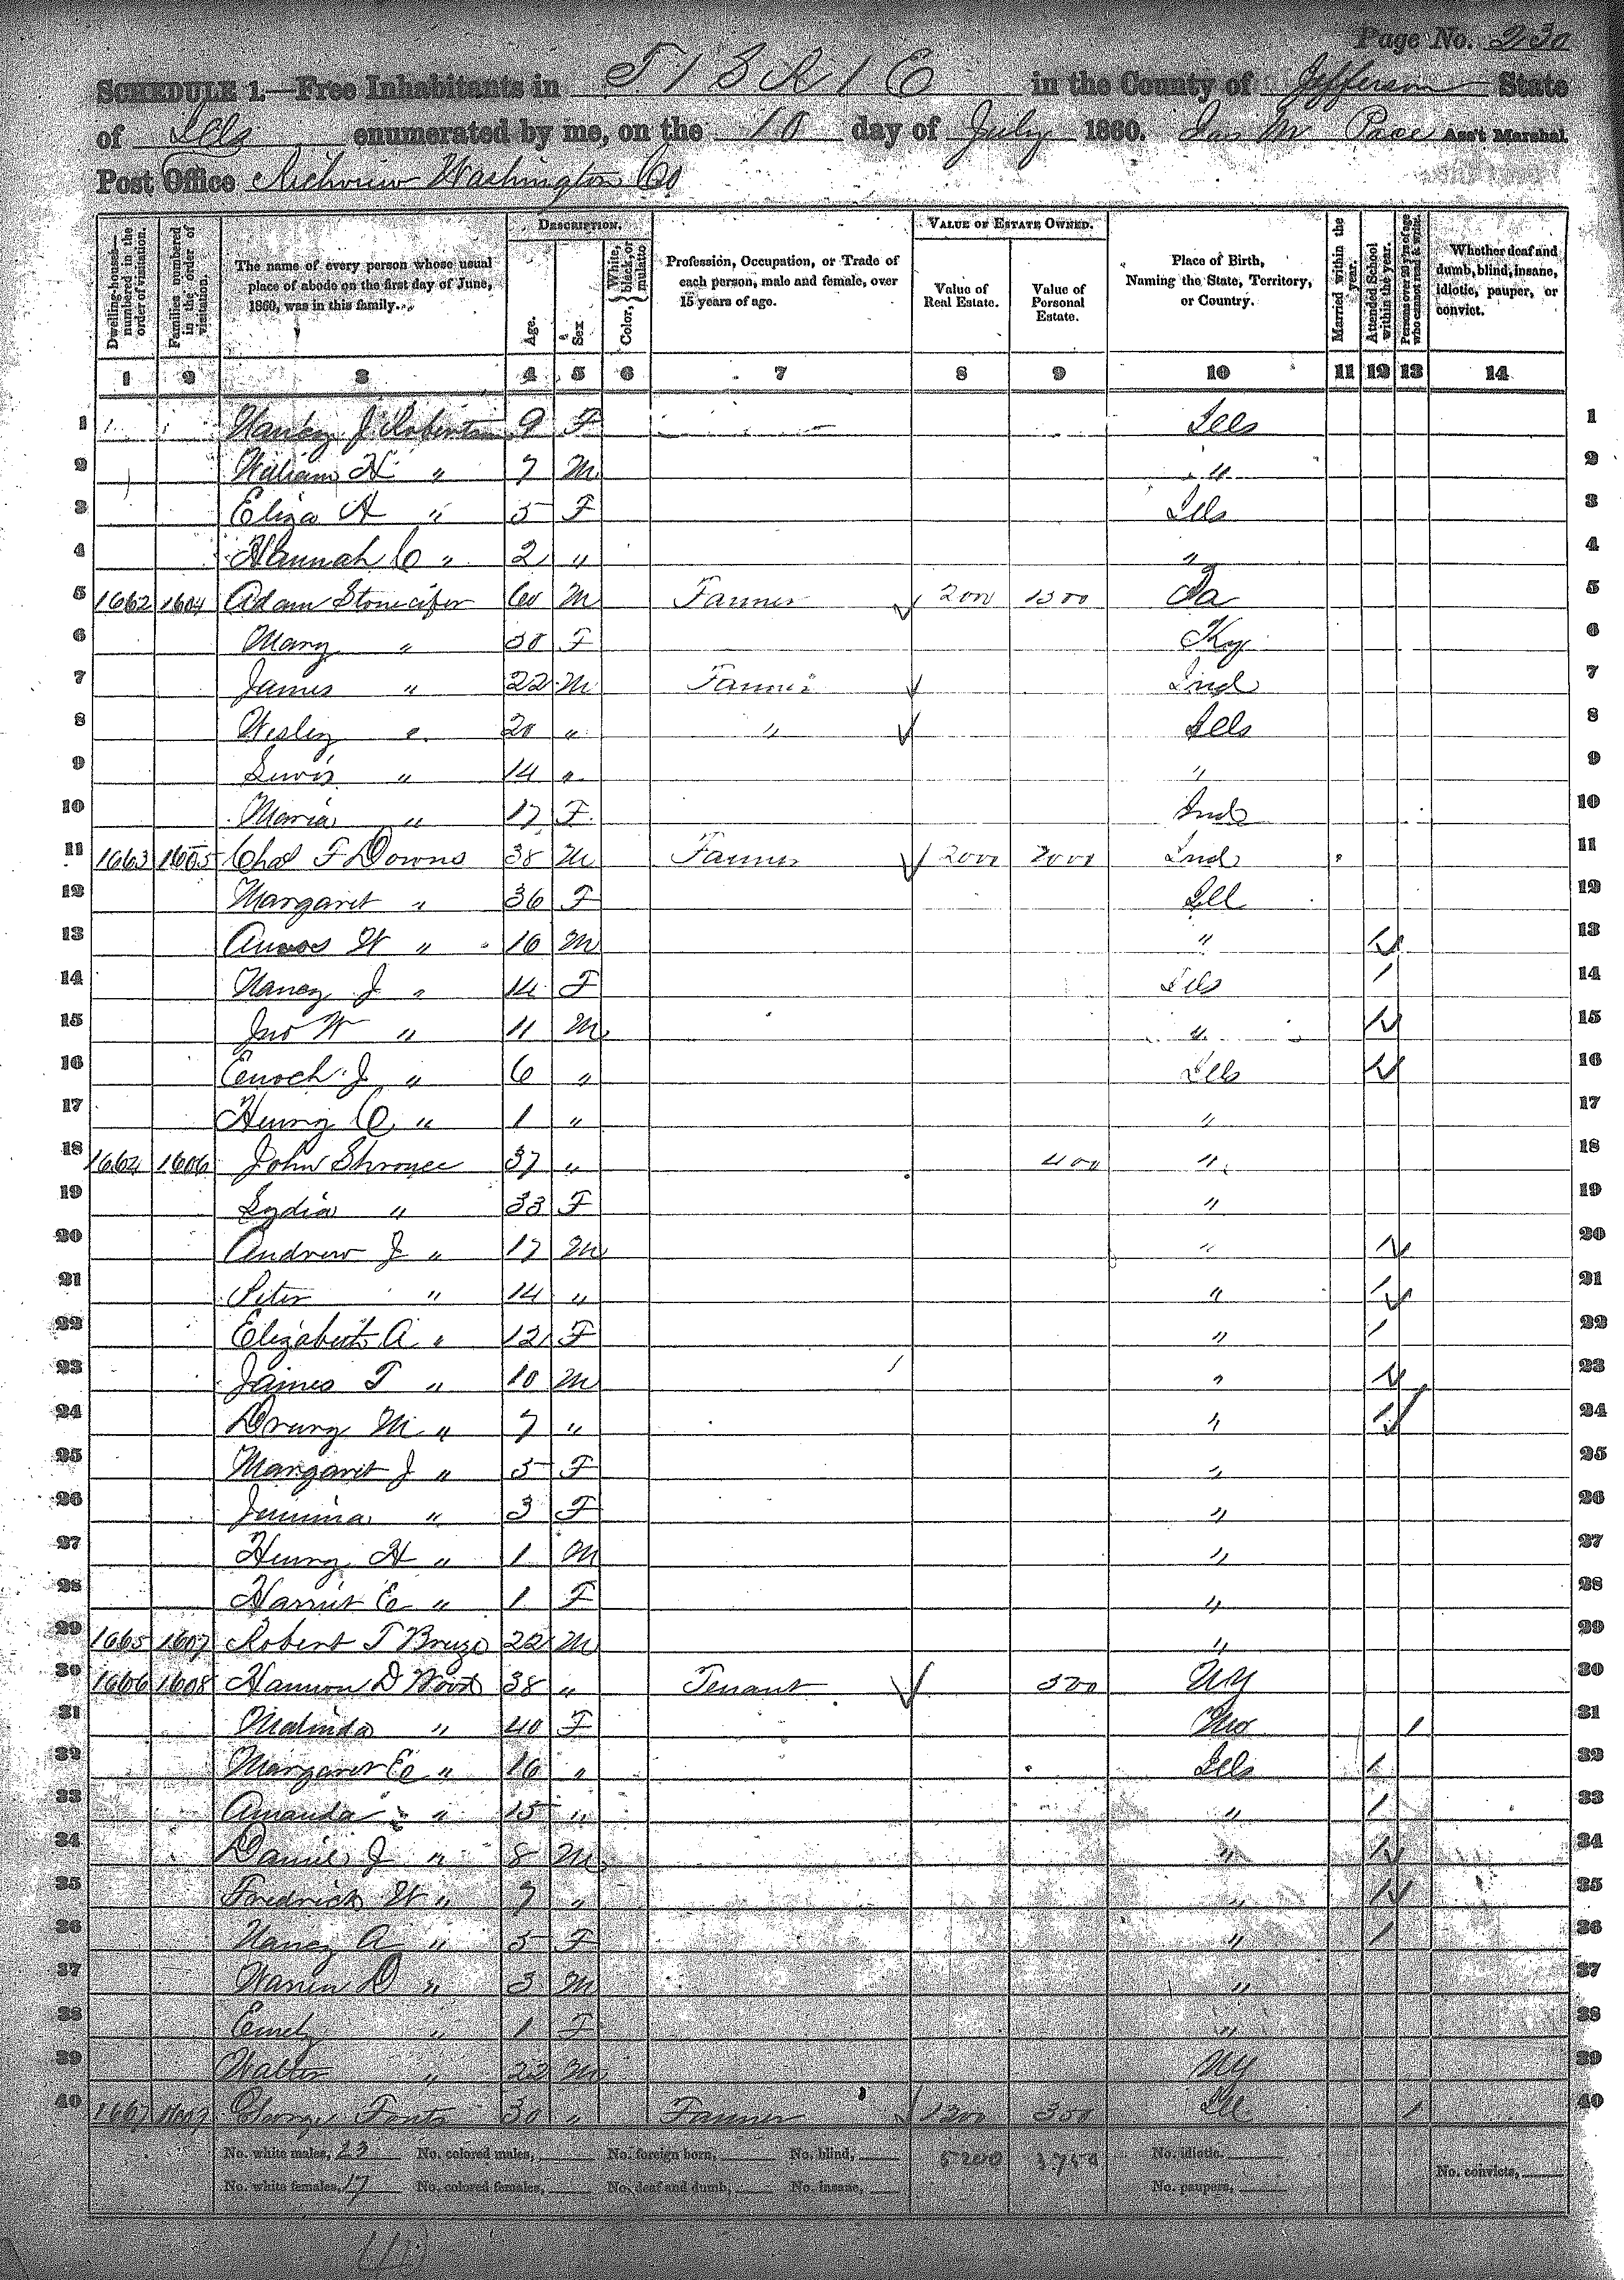 Page No. 230
SCHEDULE 1.—Free Inhabitants in T 1 S R 1 E in the County of Jefferson State
of Ills enumerated by me, on the 10 day of July 1860. Jas M Pace Ass't Marshal.
Post Office Richview Washington Co
Dwelling-houses—numbered in the order of visitation. Families numbered in the order of visitation. The name of every person whose usual place of abode on the first day of June, 1860, was in this family. DESCRIPTION. Age. Sex Color, { White, black, or mulatto Profession, Occupation, or Trade of each person, male and female, over 15 years of age. VALUE OF ESTATE OWNED. Value of Real Estate. Value of Personal Estate. Place of Birth, Naming the State, Territory, or Country. Married within the year. Attended School within the year. Persons over 20 y'rs of age who cannot read & write. Whether deaf and dumb, blind, insane, idiotic, pauper, or convict.
1 2 3 4 5 6 7 8 9 10 11 12 13 14
1 Nancy J Robertson 9 F Ills 1
2 William H " 7 M " 2
3 Eliza A " 5 F Ills 3
4 Hannah C " 2 " " 4
5 1662 1604 Adam Stonecifer 60 M Farmer 2000 1300 Pa 5
6 Mary " 50 F Ky 6
7 James " 22 M Farmer Ind 7
8 Wesley " 20 " " Ills 8
9 Lewis " 14 " " 9
10 Maria " 17 F Ind 10
11 1663 1605 Chas F Downs 38 M Farmer 2000 2000 Ind 11
12 Margaret " 36 F Ill 12
13 Amos W " 16 M " 1 13
14 Nancy J " 14 F Ills 1 14
15 Jno W " 11 M " 1 15
16 Enoch J " 6 " Ills 1 16
17 Henry C " 1 " " 17
18 1664 1606 John Shronce 37 " 400 " 18
19 Lydia " 33 F " 19
20 Andrew J " 17 M " 1 20
21 Peter " 14 " " 1 21
22 Elizabeth A " 12 F " 1 22
23 James T " 10 M " 1 23
24 Drury M " 7 " " 1 24
25 Margaret J " 5 F " 25
26 Jemima " 3 F " 26
27 Henry H " 1 M " 27
28 Harriet E " 1 F " 28
29 1665 1607 Robert T 22 M " 29
30 1666 1608 Harmon D Wood 38 " Tenant 300 NY 30
31 Malinda " 40 F Mo 1 31
32 Margaret E " 16 " Ills 1 32
33 Amanda " 15 " " 1 33
34 Daniel J " 8 M " 1 34
35 Fredrick W " 7 " " 1 35
36 Nancy A " 5 F " 1 36
37 Warren D " 3 M " 37
38 Emely " 1 F " 38
39 Walter " 22 M NY 39
40 1667 1609 George Fouts 30 " Farmer 1200 350 Ill 1 40
No. white males, 23 No. colored males, No. foreign born, No. blind, 5200 No. idiotic,
No. white females, 17 No. colored females, No. deaf and dumb, No. insane, No. paupers, No. convicts,